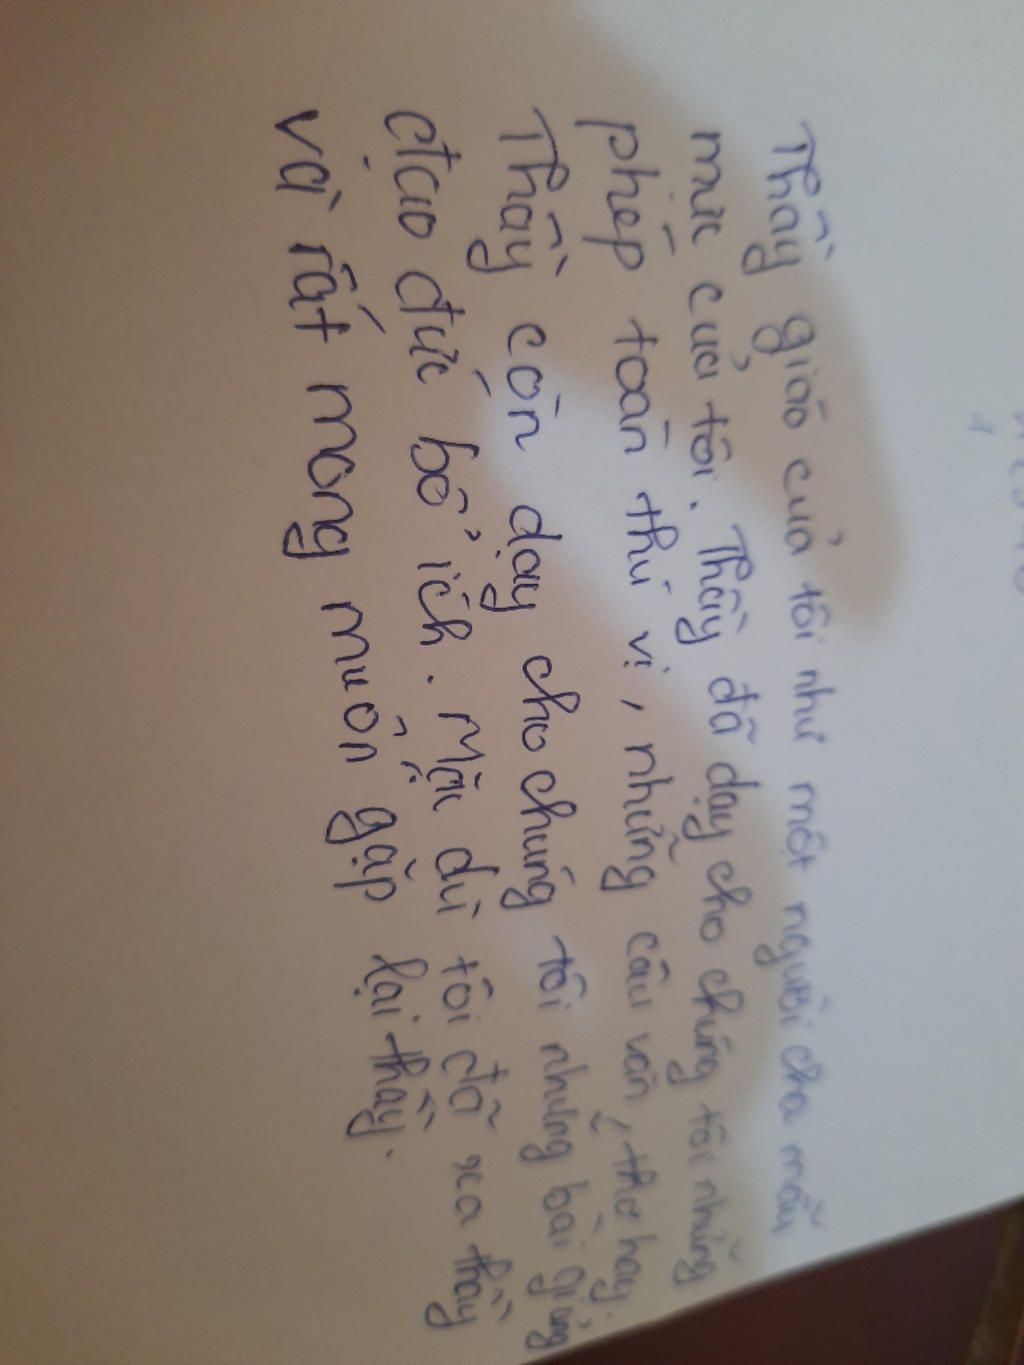 Thầy giáo của tôi như một người cha mẫu
mực của tôi. Thầy đã dạy cho chúng tôi những
phép toán thú vị, những câu văn, thơ hay.
Thầy còn dạy cho chúng tôi những bài giảng
đạo đức bổ ích. Mặc dù tôi đã xa thầy
và rất mong muốn gặp lại thầy.